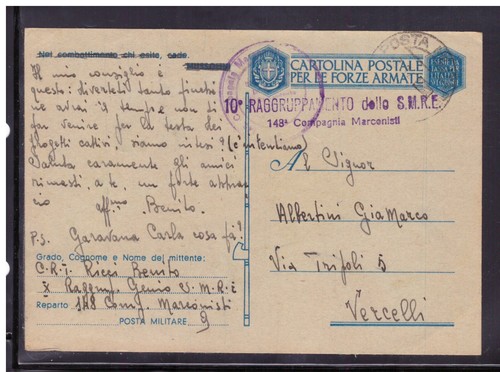 Nel combattimento chi esita, cade.
Il mio consiglio è
questi divertiti tanto finchè
ne avrai il tempo e non ti
far venire per la testa dei
progetti cattivi siamo intesi? (c'intendiamo)
Saluta caramente gli amici
rimasti, a te un forte abbrac
cio aff.mo Benito.
P.S. Garavana Carla cosa fa?
Grado, Cognome e Nome del mittente:
C.R.T. Ricci Benito
X Raggrup. Genio S.M.R.E
Reparto 148 Comp. Marconisti
POSTA MILITARE 9
CARTOLINA POSTALE
PER LE FORZE ARMATE
POSTA
10° RAGGRUPPAMENTO dello S.M.R.E.
148ª Compagnia Marconisti
Al Signor
Albertini GiaMarco
Via Tripoli 5
Vercelli